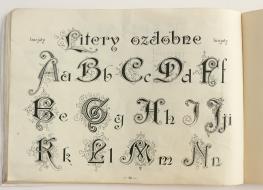 Litery ozdobne
Aa Bb Cc Dd Ff
Ee Gg Hh Ii Jj
Kk Ll Mm Nn